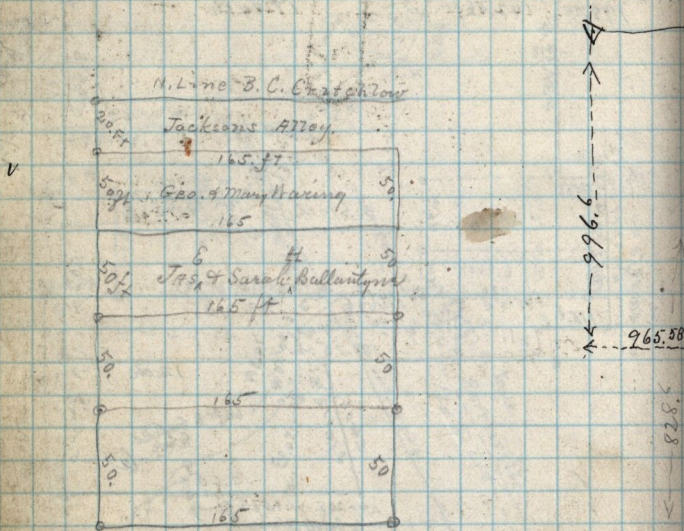 N. Line B. C. Critchlow
20.ft
Jacksons Alley.
165.ft
50ft
Geo. & Mary Waring
50.
165
6 H
50ft
Jas, & Sarah, Ballantyne
50
165 ft
50.
50
165
50.
50
165
996.6
965.58
828.